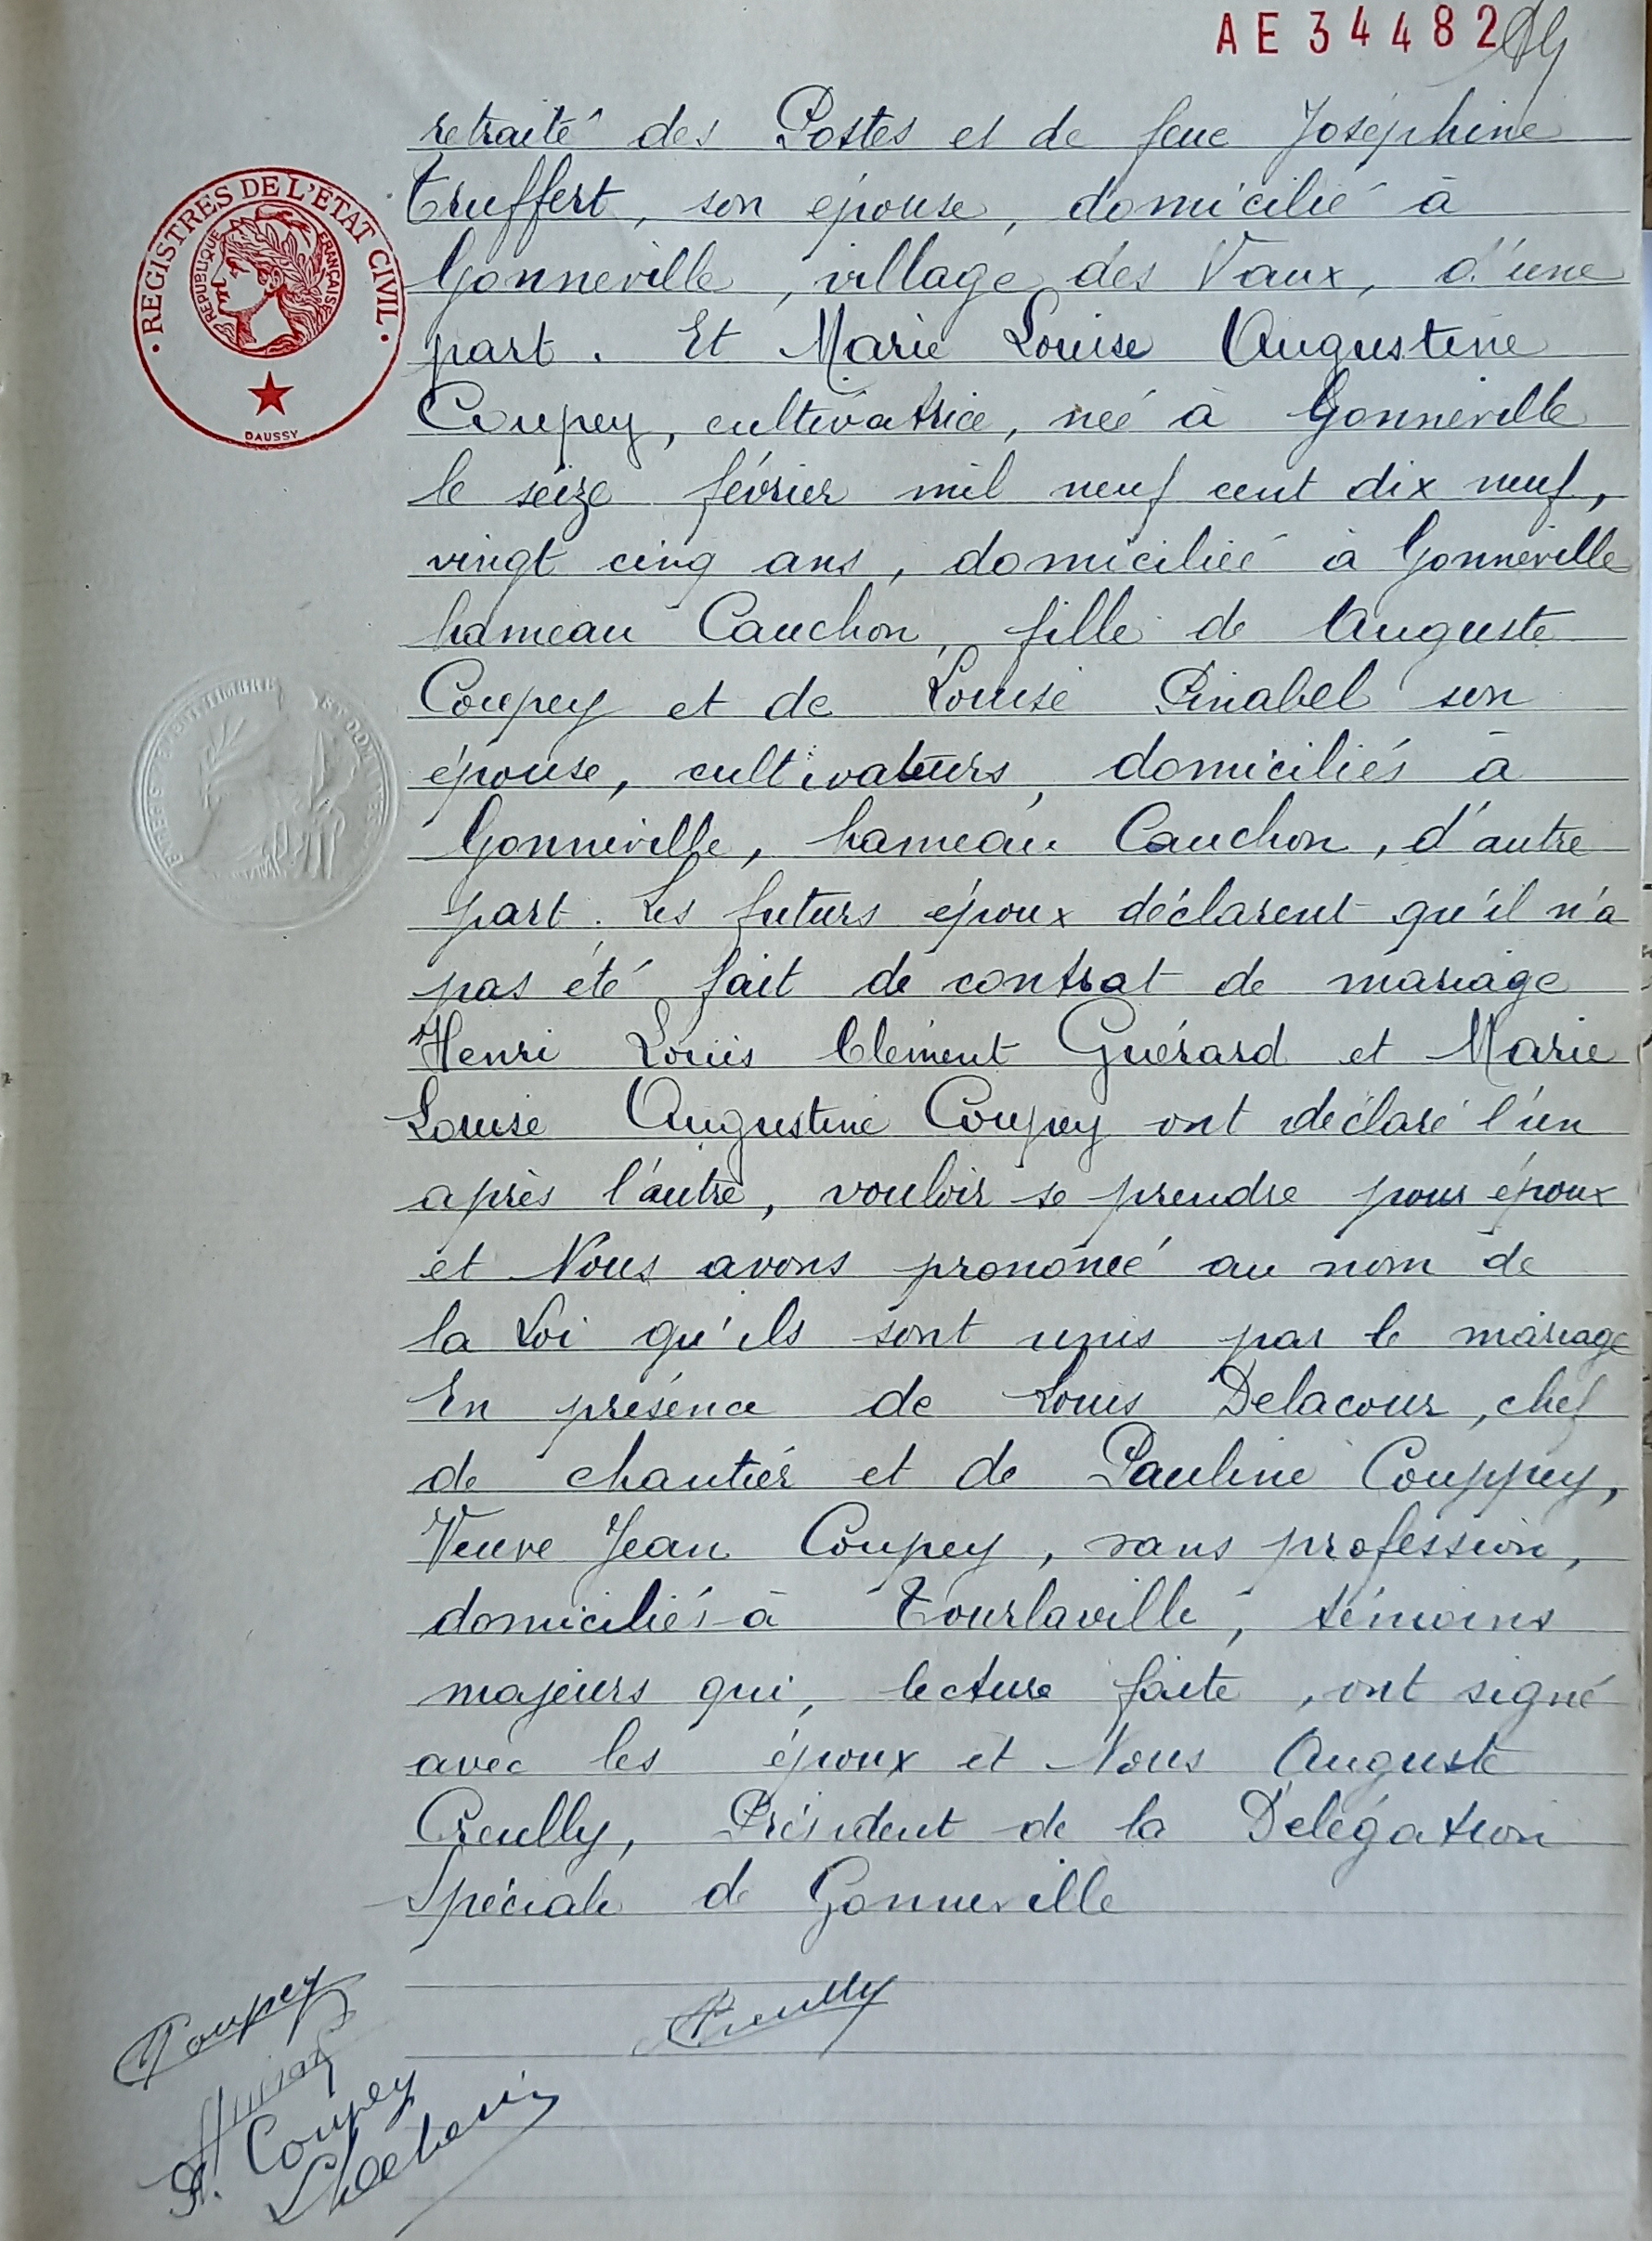 AE34482
retraité des Postes et de feue Joséphine
Truffert, son épouse, domicilié à
Gonneville, village des Vaux, d'une
part. Et Marie Louise Augustine
Coupey, cultivatrice, née à Gonneville
le seize février mil neuf cent dix neuf,
vingt cinq ans, domiciliée à Gonneville
hameau Cauchon, fille de Auguste
Coupey et de Louise Pinabel son
épouse, cultivateurs, domiciliés à
Gonneville, hameau Cauchon, d'autre
part. Les futurs époux déclarent qu'il n'a
pas été fait de contrat de mariage
Henri Louis Clément Guérard et Marie
Louise Augustine Coupey ont déclaré l'un
après l'autre, vouloir se prendre pour époux
et Nous avons prononcé au nom de
la Loi qu'ils sont unis par le mariage
En présence de Louis Delacour, chef
de chantier et de Pauline Couppey,
Veuve Jean Coupey, sans profession,
domiciliés à Tourlaville, témoins
majeurs qui, lecture faite, ont signé
avec les époux et Nous Auguste
Creully, Président de la Délégation
Spéciale de Gonneville
REGISTRES DE L'ÉTAT CIVIL
RÉPUBLIQUE FRANÇAISE
DAUSSY
Coupey
Creully
Coupey